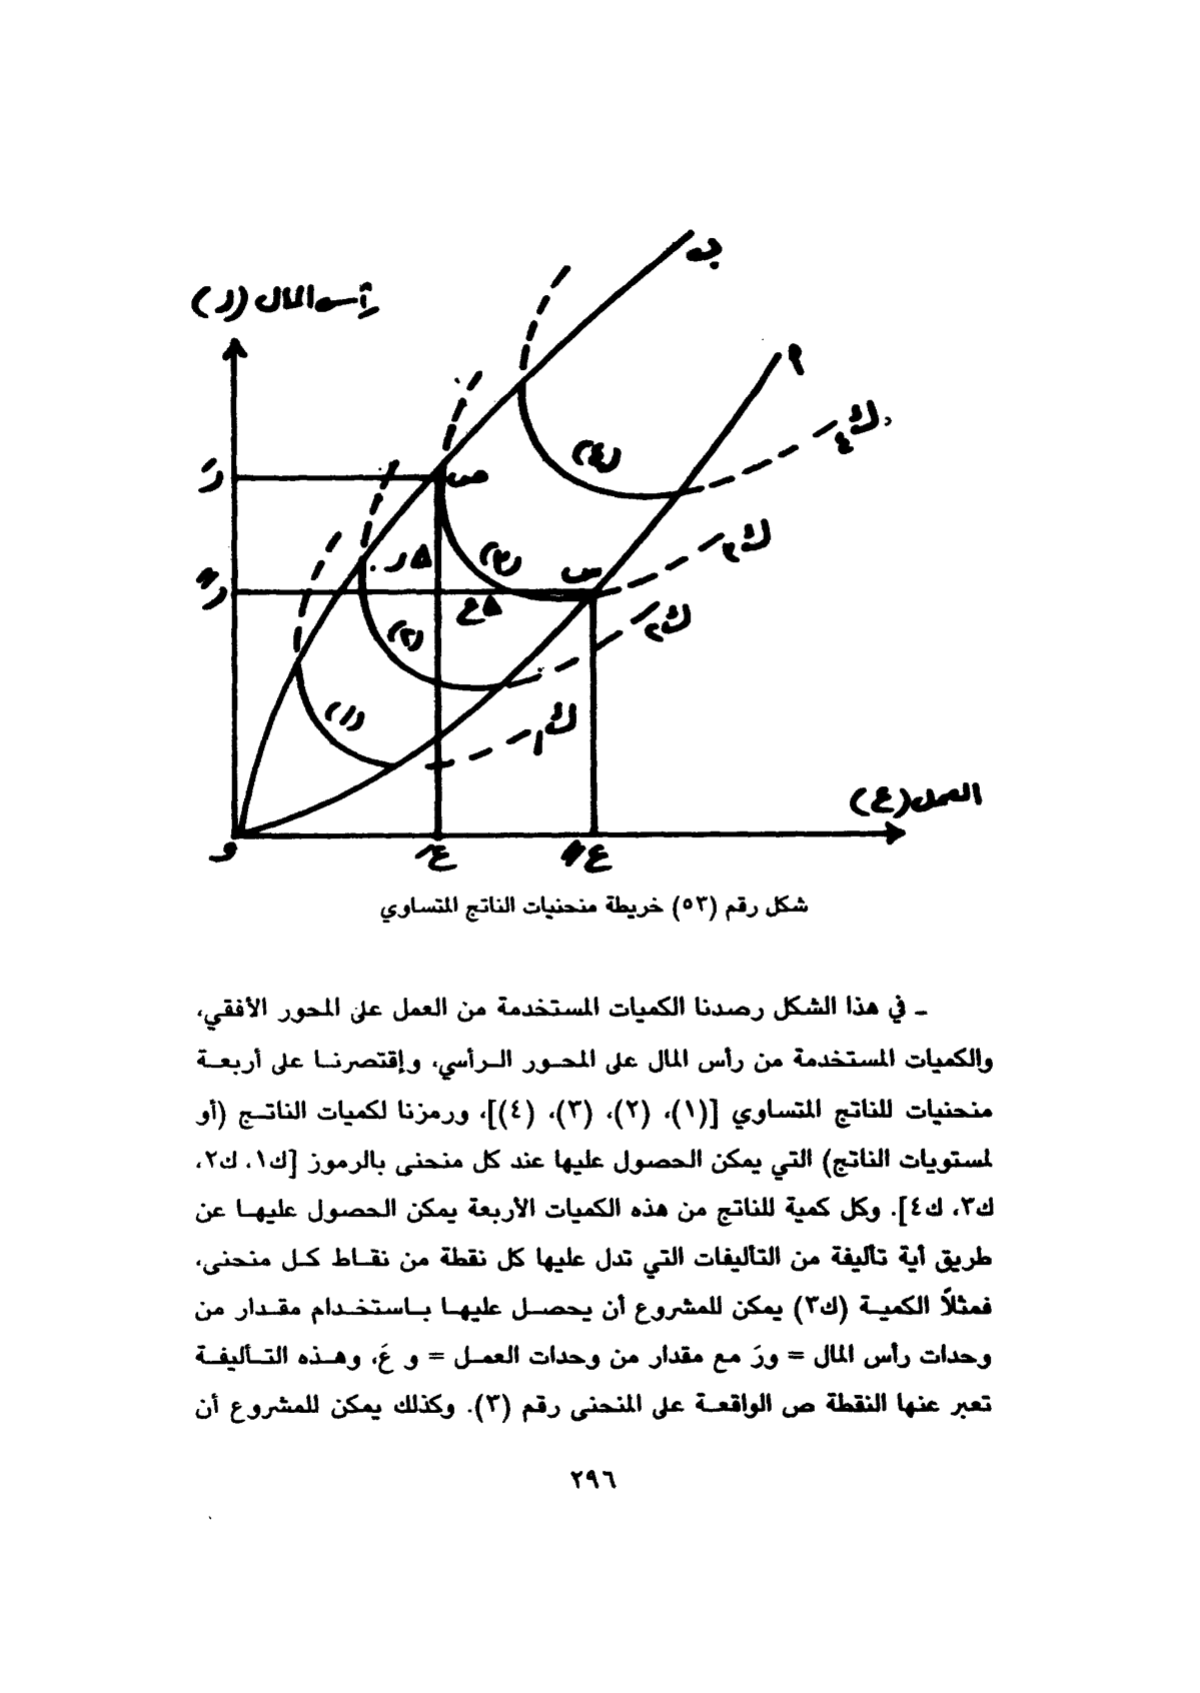 جـ
رأس المال (ر)
أ
ك٤
(٤)
رَ
ص
ك٣
(٣)
س
Δر
رً
Δع
ك٢
(٢)
(١)
ك١
العمل (ع)
و
عَ
عً
شكل رقم (٥٣) خريطة منحنيات الناتج المتساوي
ـ في هذا الشكل رصدنا الكميات المستخدمة من العمل على المحور الأفقي،
والكميات المستخدمة من رأس المال على المحور الرأسي، وإقتصرنا على أربعة
منحنيات للناتج المتساوي [(١)، (٢)، (٣)، (٤)]، ورمزنا لكميات الناتج (أو
لمستويات الناتج) التي يمكن الحصول عليها عند كل منحنى بالرموز [ك١، ك٢،
ك٣، ك٤]. وكل كمية للناتج من هذه الكميات الأربعة يمكن الحصول عليها عن
طريق أية تأليفة من التأليفات التي تدل عليها كل نقطة من نقاط كل منحنى،
فمثلاً الكمية (ك٣) يمكن للمشروع أن يحصل عليها باستخدام مقدار من
وحدات رأس المال = ورَ مع مقدار من وحدات العمل = و عَ، وهذه التأليفة
تعبر عنها النقطة ص الواقعة على المنحنى رقم (٣). وكذلك يمكن للمشروع أن
٢٩٦